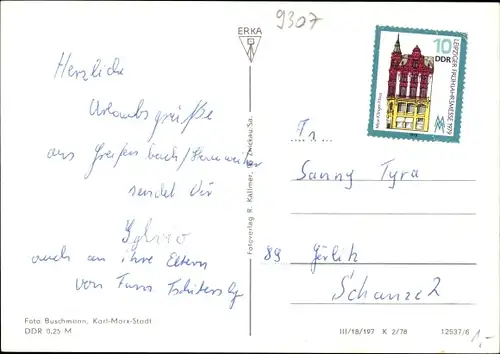 9307
ERKA
10
DDR
LEIPZIGER FRÜHJAHRSMESSE 1979
MM
Herzliche
Urlaubsgrüße
aus Greifenbach/
sendet Dir
Sylvio
auch an ihre Eltern
von Fam
Fr.
Sanny Tyra
89 Görlitz
Schanze 2
Fotoverlag R. Kallmer, Zwickau/Sa.
Foto Buschmann, Karl-Marx-Stadt
DDR 0,25 M
III/18/197 K 2/78 12537/6
1,-